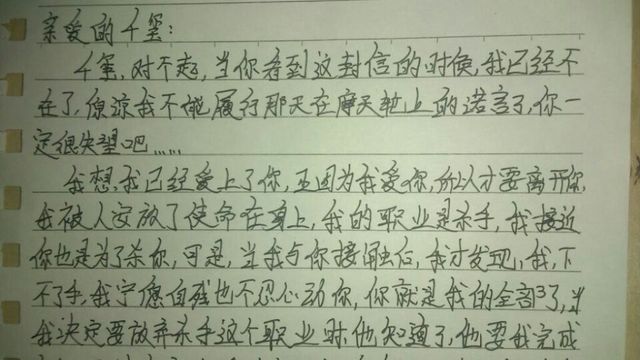 亲爱的千玺:
千玺,对不起,当你看到这封信的时候,我已经不
在了,原谅我不能履行那天在摩天轮上的诺言了,你一
定很失望吧……
我想,我已经爱上了你,正因为我爱你,所以才要离开你,
我被人安放了使命在身上,我的职业是杀手,我接近
你也是为了杀你,可是,当我与你接触后,我才发现,我,下
不了手,我宁愿自残也不忍心动你,你就是我的全部了,当
我决定要放弃杀手这个职业时他知道了,他要我完成